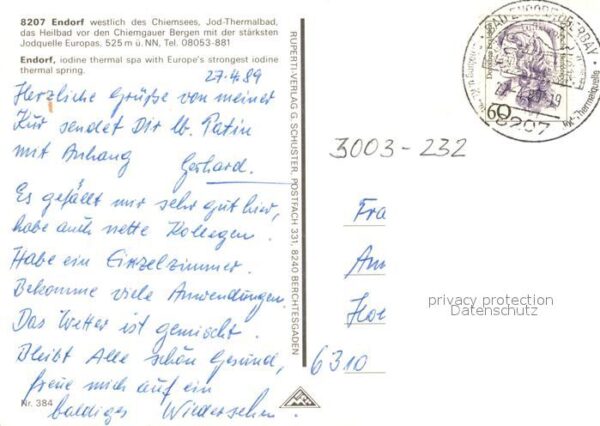 8207 Endorf westlich des Chiemsees, Jod-Thermalbad,
das Heilbad vor den Chiemgauer Bergen mit der stärksten
Jodquelle Europas. 525 m ü. NN, Tel. 08053-881
Endorf, iodine thermal spa with Europe's strongest iodine
thermal spring.
27.4.89
Herzliche Grüße von meiner
Kur sendet Dir lb. Patin
mit Anhang
Gerhard.
Es gefällt mir sehr gut hier,
habe auch nette Kollegen.
Habe ein Einzelzimmer.
Bekomme viele Anwendungen.
Das Wetter ist gemischt.
Bleibt Alle schön gesund,
freue mich auf ein
baldiges Wiedersehen.
Nr. 384
RUPERTI-VERLAG G. SCHUSTER, POSTFACH 331, 8240 BERCHTESGADEN
60
8207
Jod-Thermalquelle
3003-232
Fra
Am
Hoe
6310
privacy protection
Datenschutz